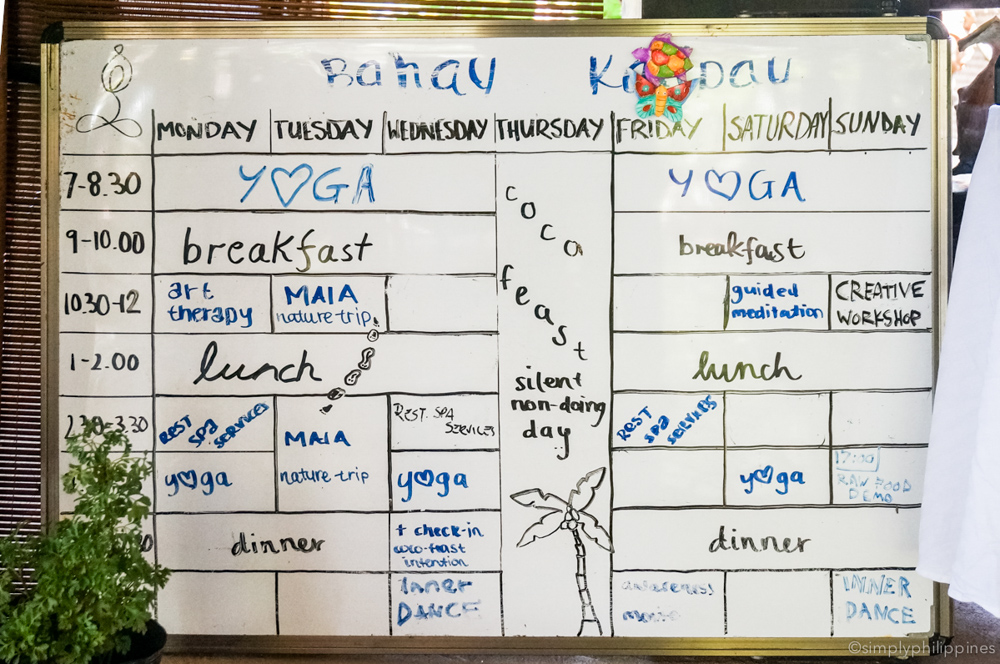 Bahay
MONDAY TUESDAY WEDNESDAY THURSDAY FRIDAY SATURDAY SUNDAY
7-8.30 YOGA YOGA
9-10.00 breakfast breakfast
10.30-12 art therapy MAIA nature trip guided meditation CREATIVE WORKSHOP
1-2.00 lunch lunch
coco
feast
silent
non-doing
day
2.30-3.30 REST SPA SERVICES MAIA REST. SPA SERVICES REST SPA SERVICES
yoga nature-trip yoga yoga 17:00 RAW FOOD DEMO
dinner + check-in coco-feast intention dinner
INNER DANCE awareness movie INNER DANCE
©simplyphilippines